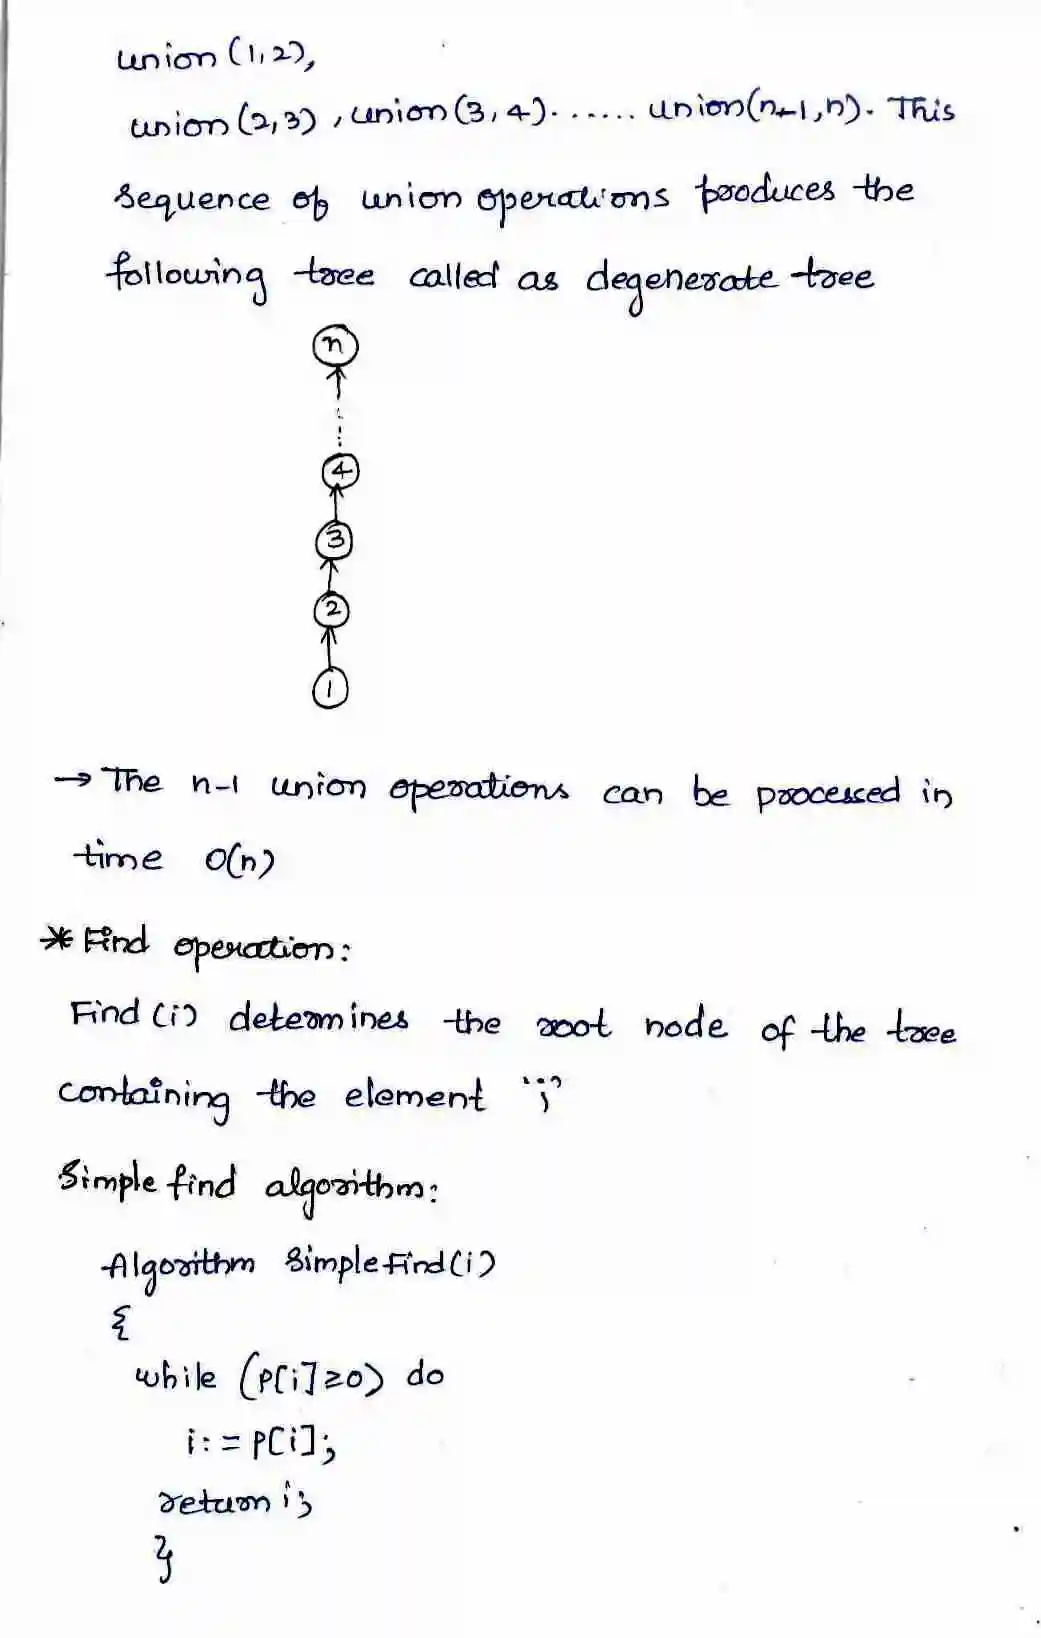 union (1,2),
union (2,3) , union (3,4). ...... union(n-1,n). This
sequence of union operations produces the
following tree called as degenerate tree
n
4
3
2
1
→ The n-1 union operations can be processed in
time O(n)
* Find operation:
Find (i) determines the root node of the tree
containing the element "i"
Simple find algorithm:
Algorithm SimpleFind(i)
{
while (P[i]≥0) do
i:= P[i];
return i;
}